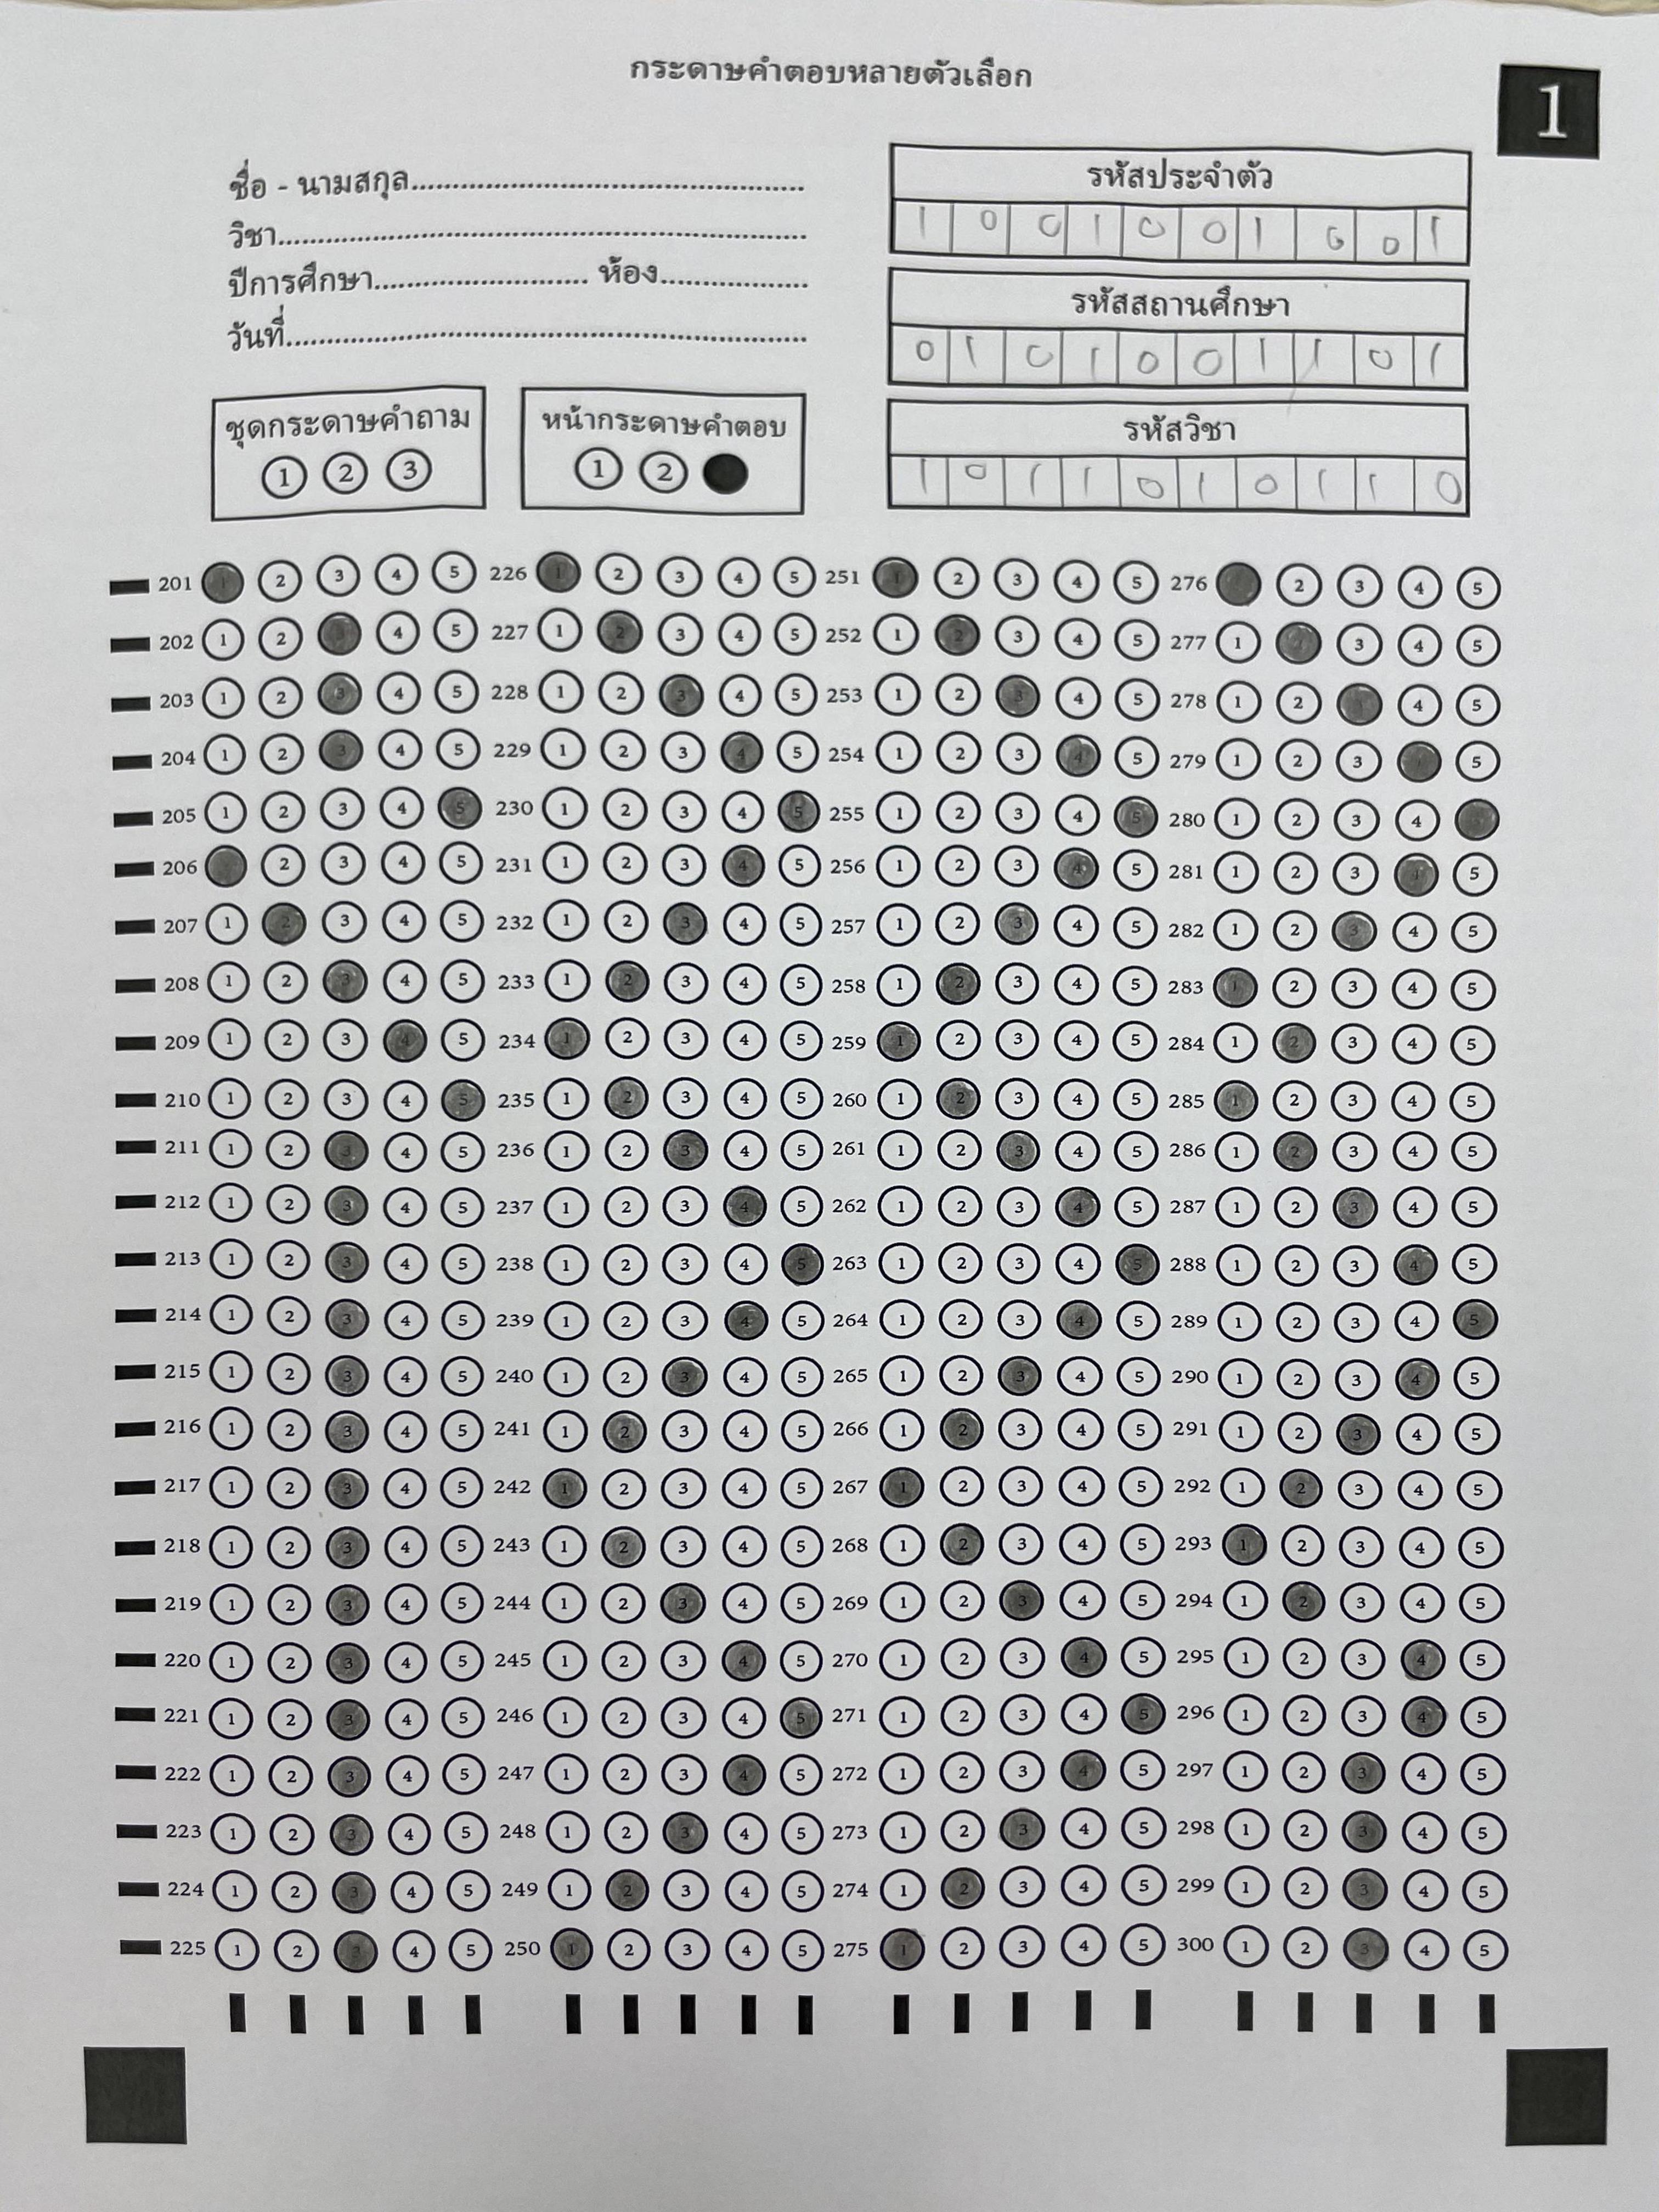 กระดาษคำตอบหลายตัวเลือก
1
ชื่อ - นามสกุล................................................
วิชา................................................................
ปีการศึกษา.......................... ห้อง..................
วันที่................................................................
รหัสประจำตัว
1 0 0 1 0 0 1 0 0 1
รหัสสถานศึกษา
0 1 0 1 0 0 1 1 0 1
รหัสวิชา
1 0 1 1 0 1 0 1 1 0
ชุดกระดาษคำถาม
1 2 3
หน้ากระดาษคำตอบ
1 2
201 1 2 3 4 5 226 1 2 3 4 5 251 1 2 3 4 5 276 2 3 4 5
202 1 2 3 4 5 227 1 2 3 4 5 252 1 2 3 4 5 277 1 2 3 4 5
203 1 2 3 4 5 228 1 2 3 4 5 253 1 2 3 4 5 278 1 2 4 5
204 1 2 3 4 5 229 1 2 3 4 5 254 1 2 3 4 5 279 1 2 3 4 5
205 1 2 3 4 5 230 1 2 3 4 5 255 1 2 3 4 5 280 1 2 3 4
206 2 3 4 5 231 1 2 3 4 5 256 1 2 3 4 5 281 1 2 3 4 5
207 1 2 3 4 5 232 1 2 3 4 5 257 1 2 3 4 5 282 1 2 3 4 5
208 1 2 3 4 5 233 1 2 3 4 5 258 1 2 3 4 5 283 1 2 3 4 5
209 1 2 3 4 5 234 1 2 3 4 5 259 1 2 3 4 5 284 1 2 3 4 5
210 1 2 3 4 5 235 1 2 3 4 5 260 1 2 3 4 5 285 1 2 3 4 5
211 1 2 3 4 5 236 1 2 3 4 5 261 1 2 3 4 5 286 1 2 3 4 5
212 1 2 3 4 5 237 1 2 3 4 5 262 1 2 3 4 5 287 1 2 3 4 5
213 1 2 3 4 5 238 1 2 3 4 5 263 1 2 3 4 5 288 1 2 3 4 5
214 1 2 3 4 5 239 1 2 3 4 5 264 1 2 3 4 5 289 1 2 3 4 5
215 1 2 3 4 5 240 1 2 3 4 5 265 1 2 3 4 5 290 1 2 3 4 5
216 1 2 3 4 5 241 1 2 3 4 5 266 1 2 3 4 5 291 1 2 3 4 5
217 1 2 3 4 5 242 1 2 3 4 5 267 1 2 3 4 5 292 1 2 3 4 5
218 1 2 3 4 5 243 1 2 3 4 5 268 1 2 3 4 5 293 1 2 3 4 5
219 1 2 3 4 5 244 1 2 3 4 5 269 1 2 3 4 5 294 1 2 3 4 5
220 1 2 3 4 5 245 1 2 3 4 5 270 1 2 3 4 5 295 1 2 3 4 5
221 1 2 3 4 5 246 1 2 3 4 5 271 1 2 3 4 5 296 1 2 3 4 5
222 1 2 3 4 5 247 1 2 3 4 5 272 1 2 3 4 5 297 1 2 3 4 5
223 1 2 3 4 5 248 1 2 3 4 5 273 1 2 3 4 5 298 1 2 3 4 5
224 1 2 3 4 5 249 1 2 3 4 5 274 1 2 3 4 5 299 1 2 3 4 5
225 1 2 3 4 5 250 1 2 3 4 5 275 1 2 3 4 5 300 1 2 3 4 5